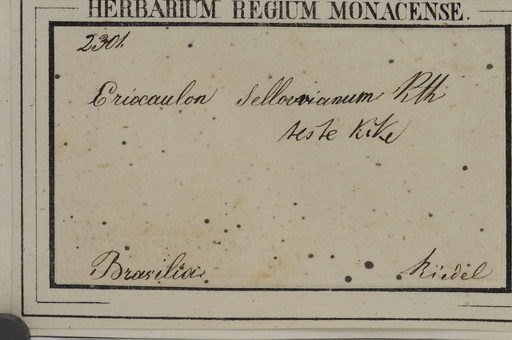 HERBARIUM REGIUM MONACENSE.
2301.
Eriocaulon Sellowianum Kth
teste Kcke
Brasilia.
Riedel